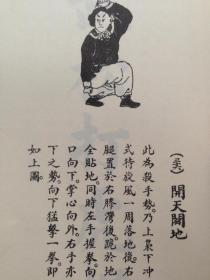 (五六) 開天闢地
此為殺手勢。乃上棄下冲
式待旋風一周落地後。右
腿置於右膝灣後。跪於地
全貼地。同時左手握拳。向
口向下。掌心向外。右手亦
下之勢。向下猛擊一拳。即
如上圖。